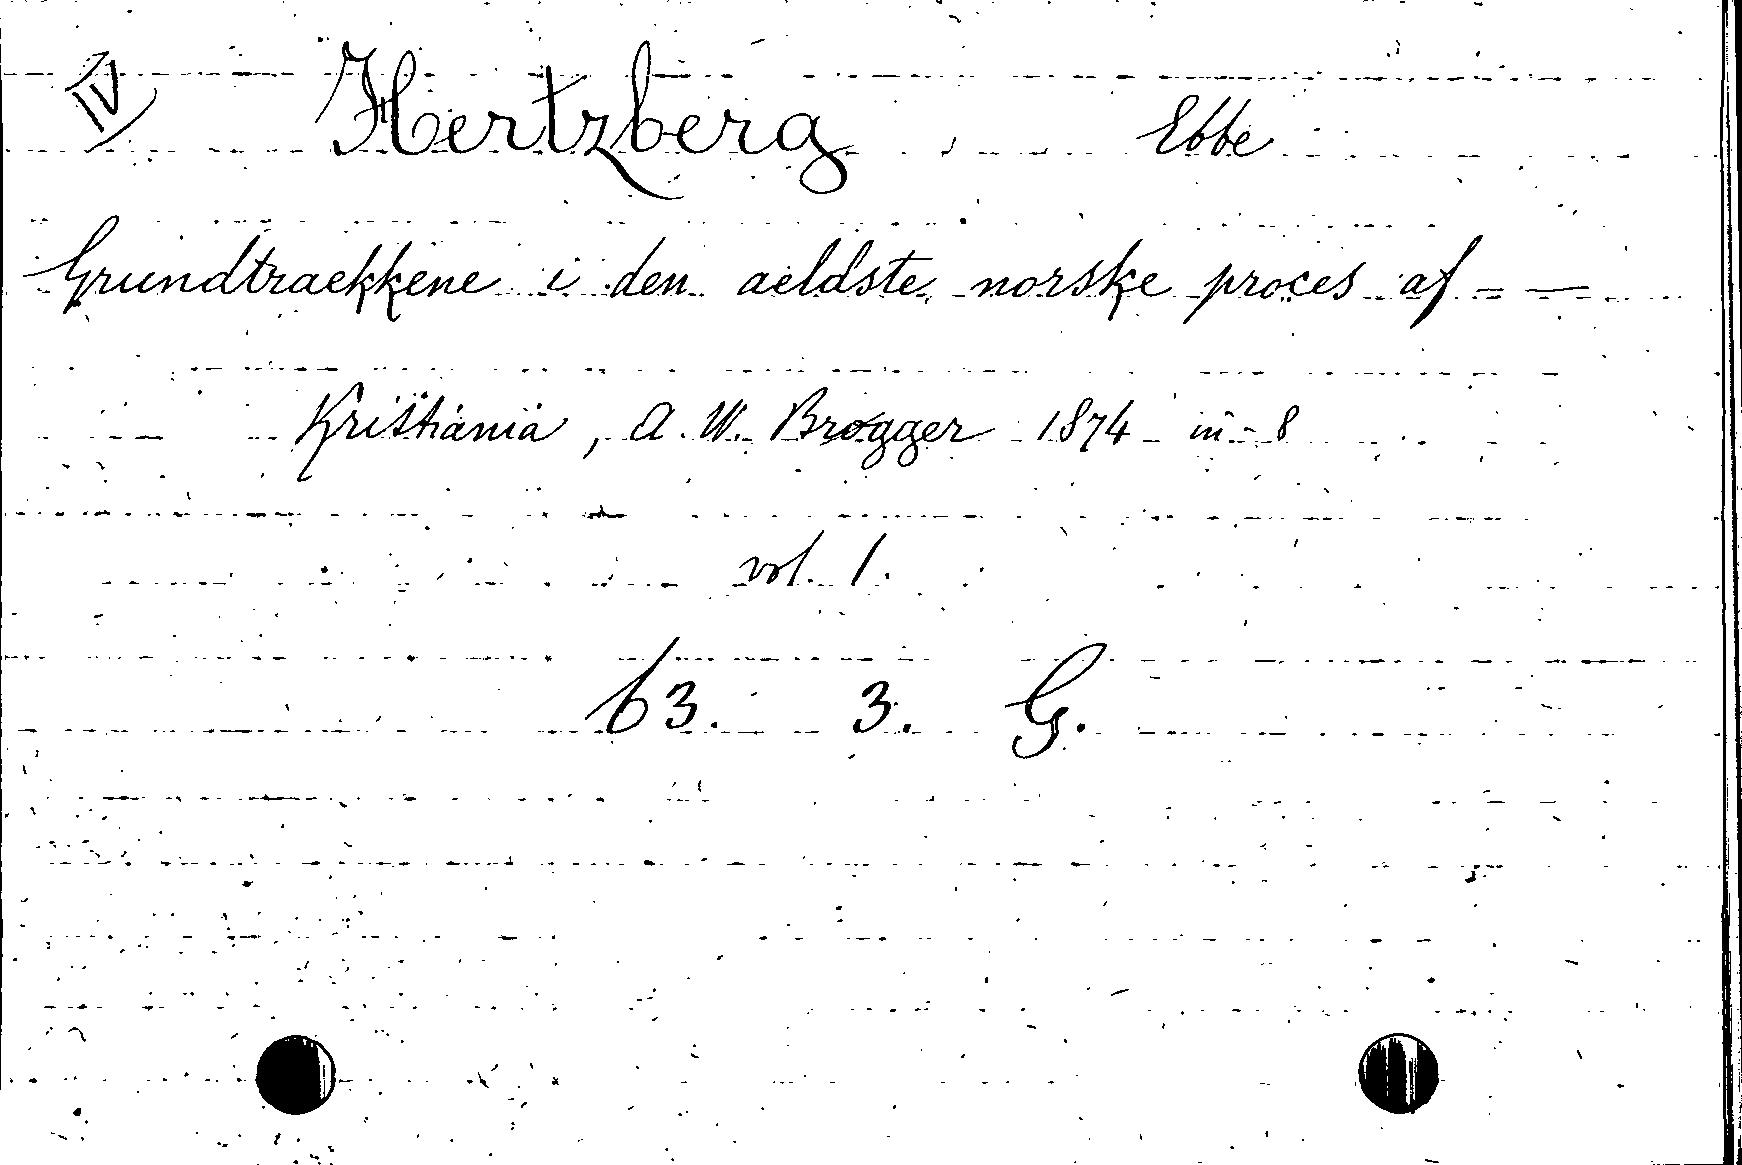 IV Hertzberg, Ebbe
Grundtraekkene i den aeldste norske proces af - —
Kristiania, A. W. Brøgger 1874 in-8
vol. 1.
63. 3. G.